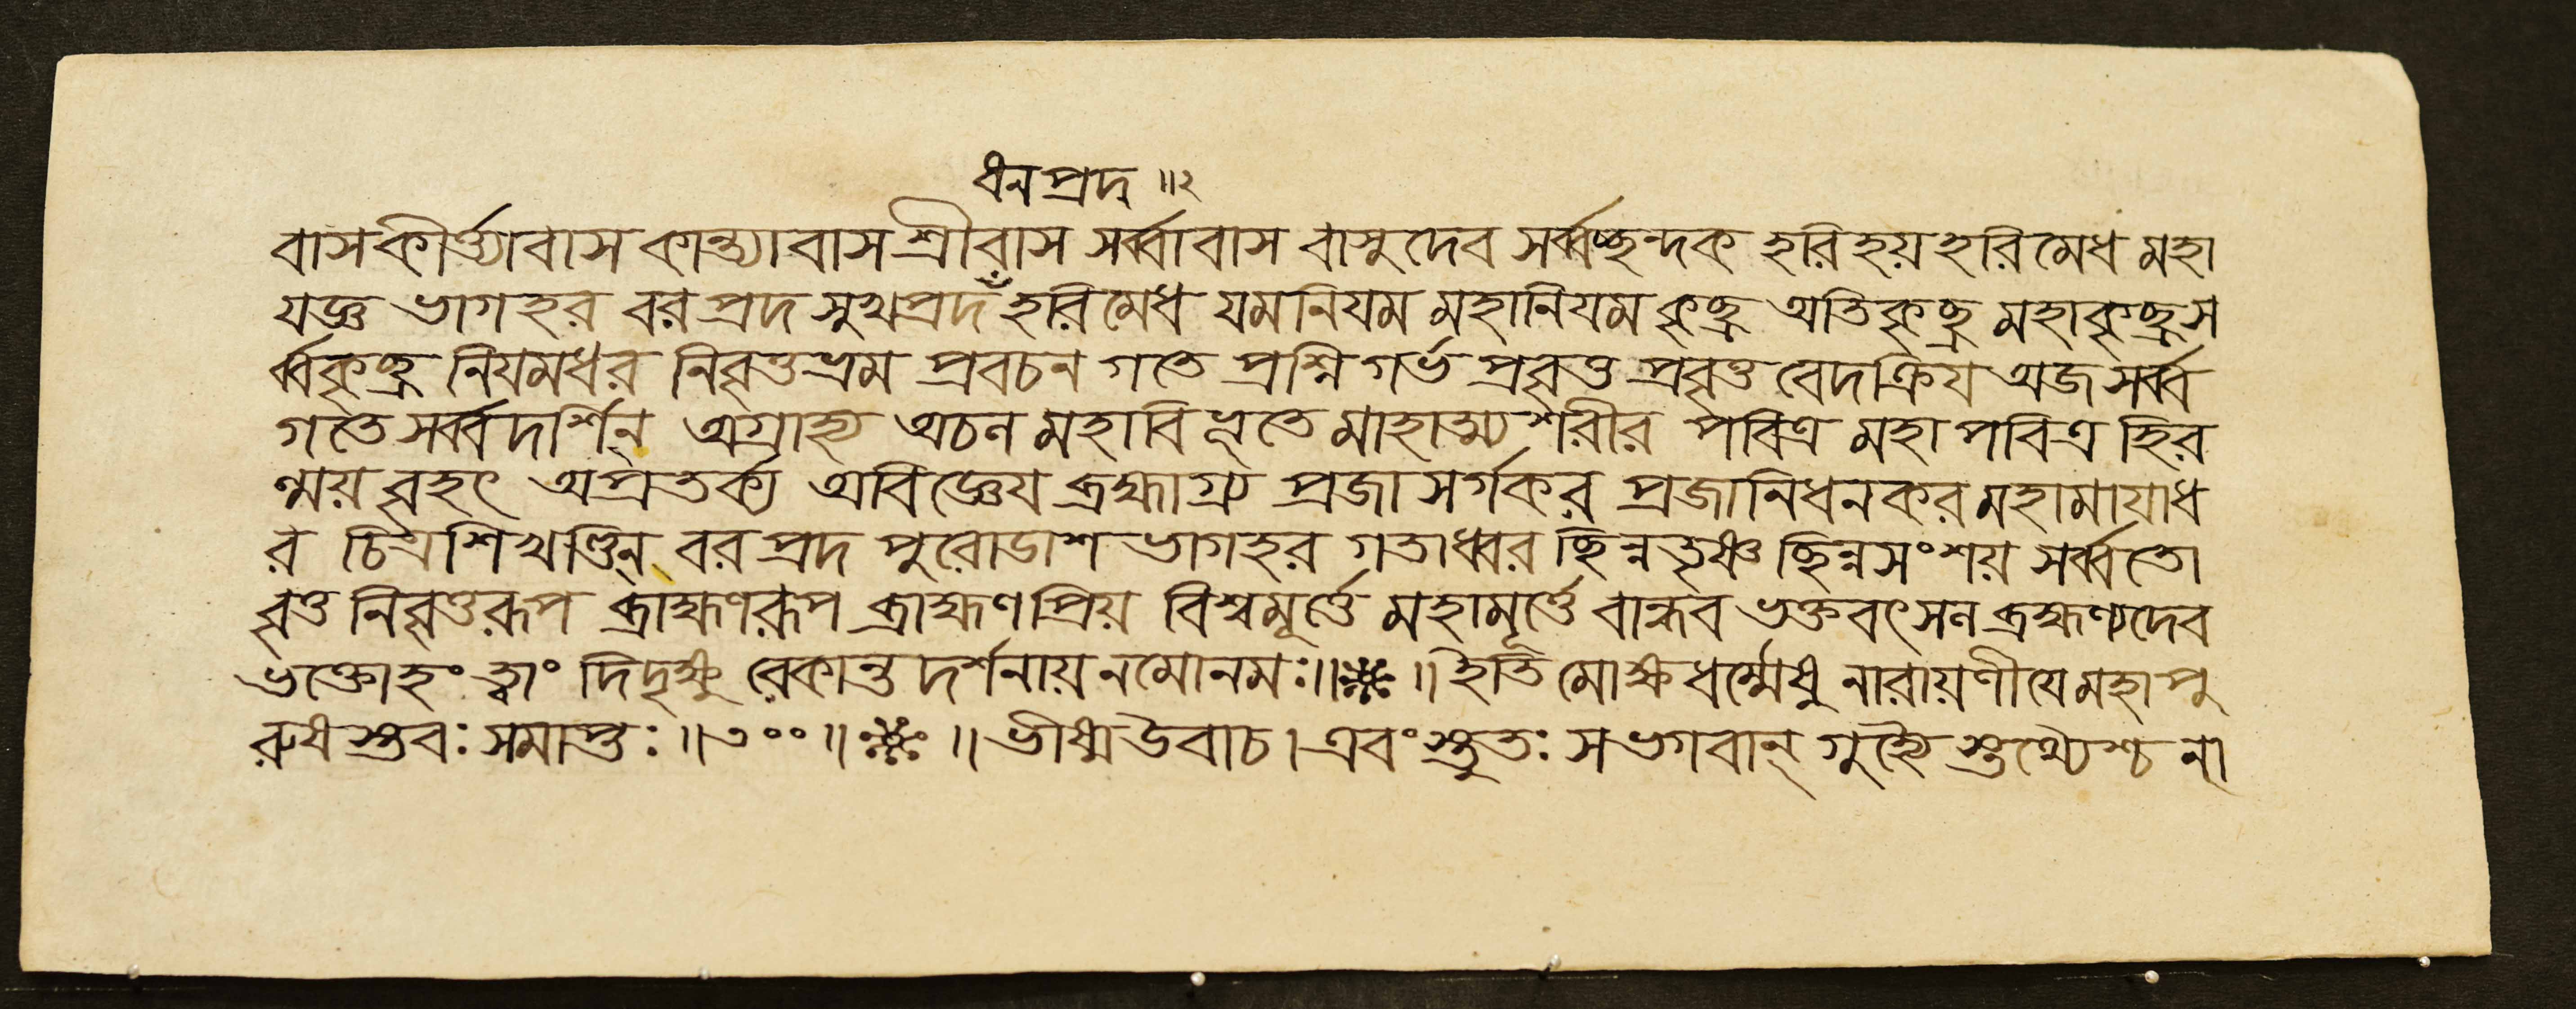 ধনপ্রদ ॥২
বাসকীর্ত্যাবাস কান্ত্যাবাস শ্রীবাস সর্ব্বাবাস বাসুদেব সর্ব্বচ্ছন্দক হরিহয় হরিমেধ মহা
যজ্ঞ ভাগহর বরপ্রদ সুখপ্রদ হরিমেধ যমনিয়ম মহানিয়ম কৃচ্ছ্র অতিকৃচ্ছ্র মহাকৃচ্ছ্র স
র্ব্বকৃচ্ছ্র নিয়মধর নিবৃত্তভ্রম প্রবচন গতে প্রশ্নিগর্ভ প্রবৃত্ত প্রবৃত্ত বেদক্রিয় অজ সর্ব্ব
গতে সর্ব্বদর্শিন্ অগ্রাহ্য অচল মহাবিভূতে মাহাত্ম্যশরীর পবিত্র মহাপবিত্র হির
ণ্ময় বৃহৎ অপ্রতর্ক্য অবিজ্ঞেয় ব্রহ্মাগ্র্য প্রজাসর্গকর প্রজানিধনকর মহামায়াধ
র চিত্রশিখণ্ডিন্ বরপ্রদ পুরোডাশ ভাগহর গতাধ্বর ছিন্নতৃষ্ণ ছিন্নসংশয় সর্ব্বতো
বৃত্ত নিবৃত্তরূপ ব্রাহ্মণরূপ ব্রাহ্মণপ্রিয় বিশ্বমূর্ত্তে মহামূর্ত্তে বান্ধব ভক্তবৎসল ব্রহ্মণ্যদেব
ভক্তোহং ত্বাং দিদৃক্ষু রেকান্ত দর্শনায় নমোনমঃ ॥ ॥ ইতি মোক্ষধর্ম্মেষু নারায়ণীয়ে মহাপু
রুষস্তবঃ সমাপ্তঃ ॥৩০০॥ ॥ ভীষ্ম উবাচ। এবং স্তুতঃ স ভগবান্ গুহ্যৈ স্তথ্যৈশ্চ না